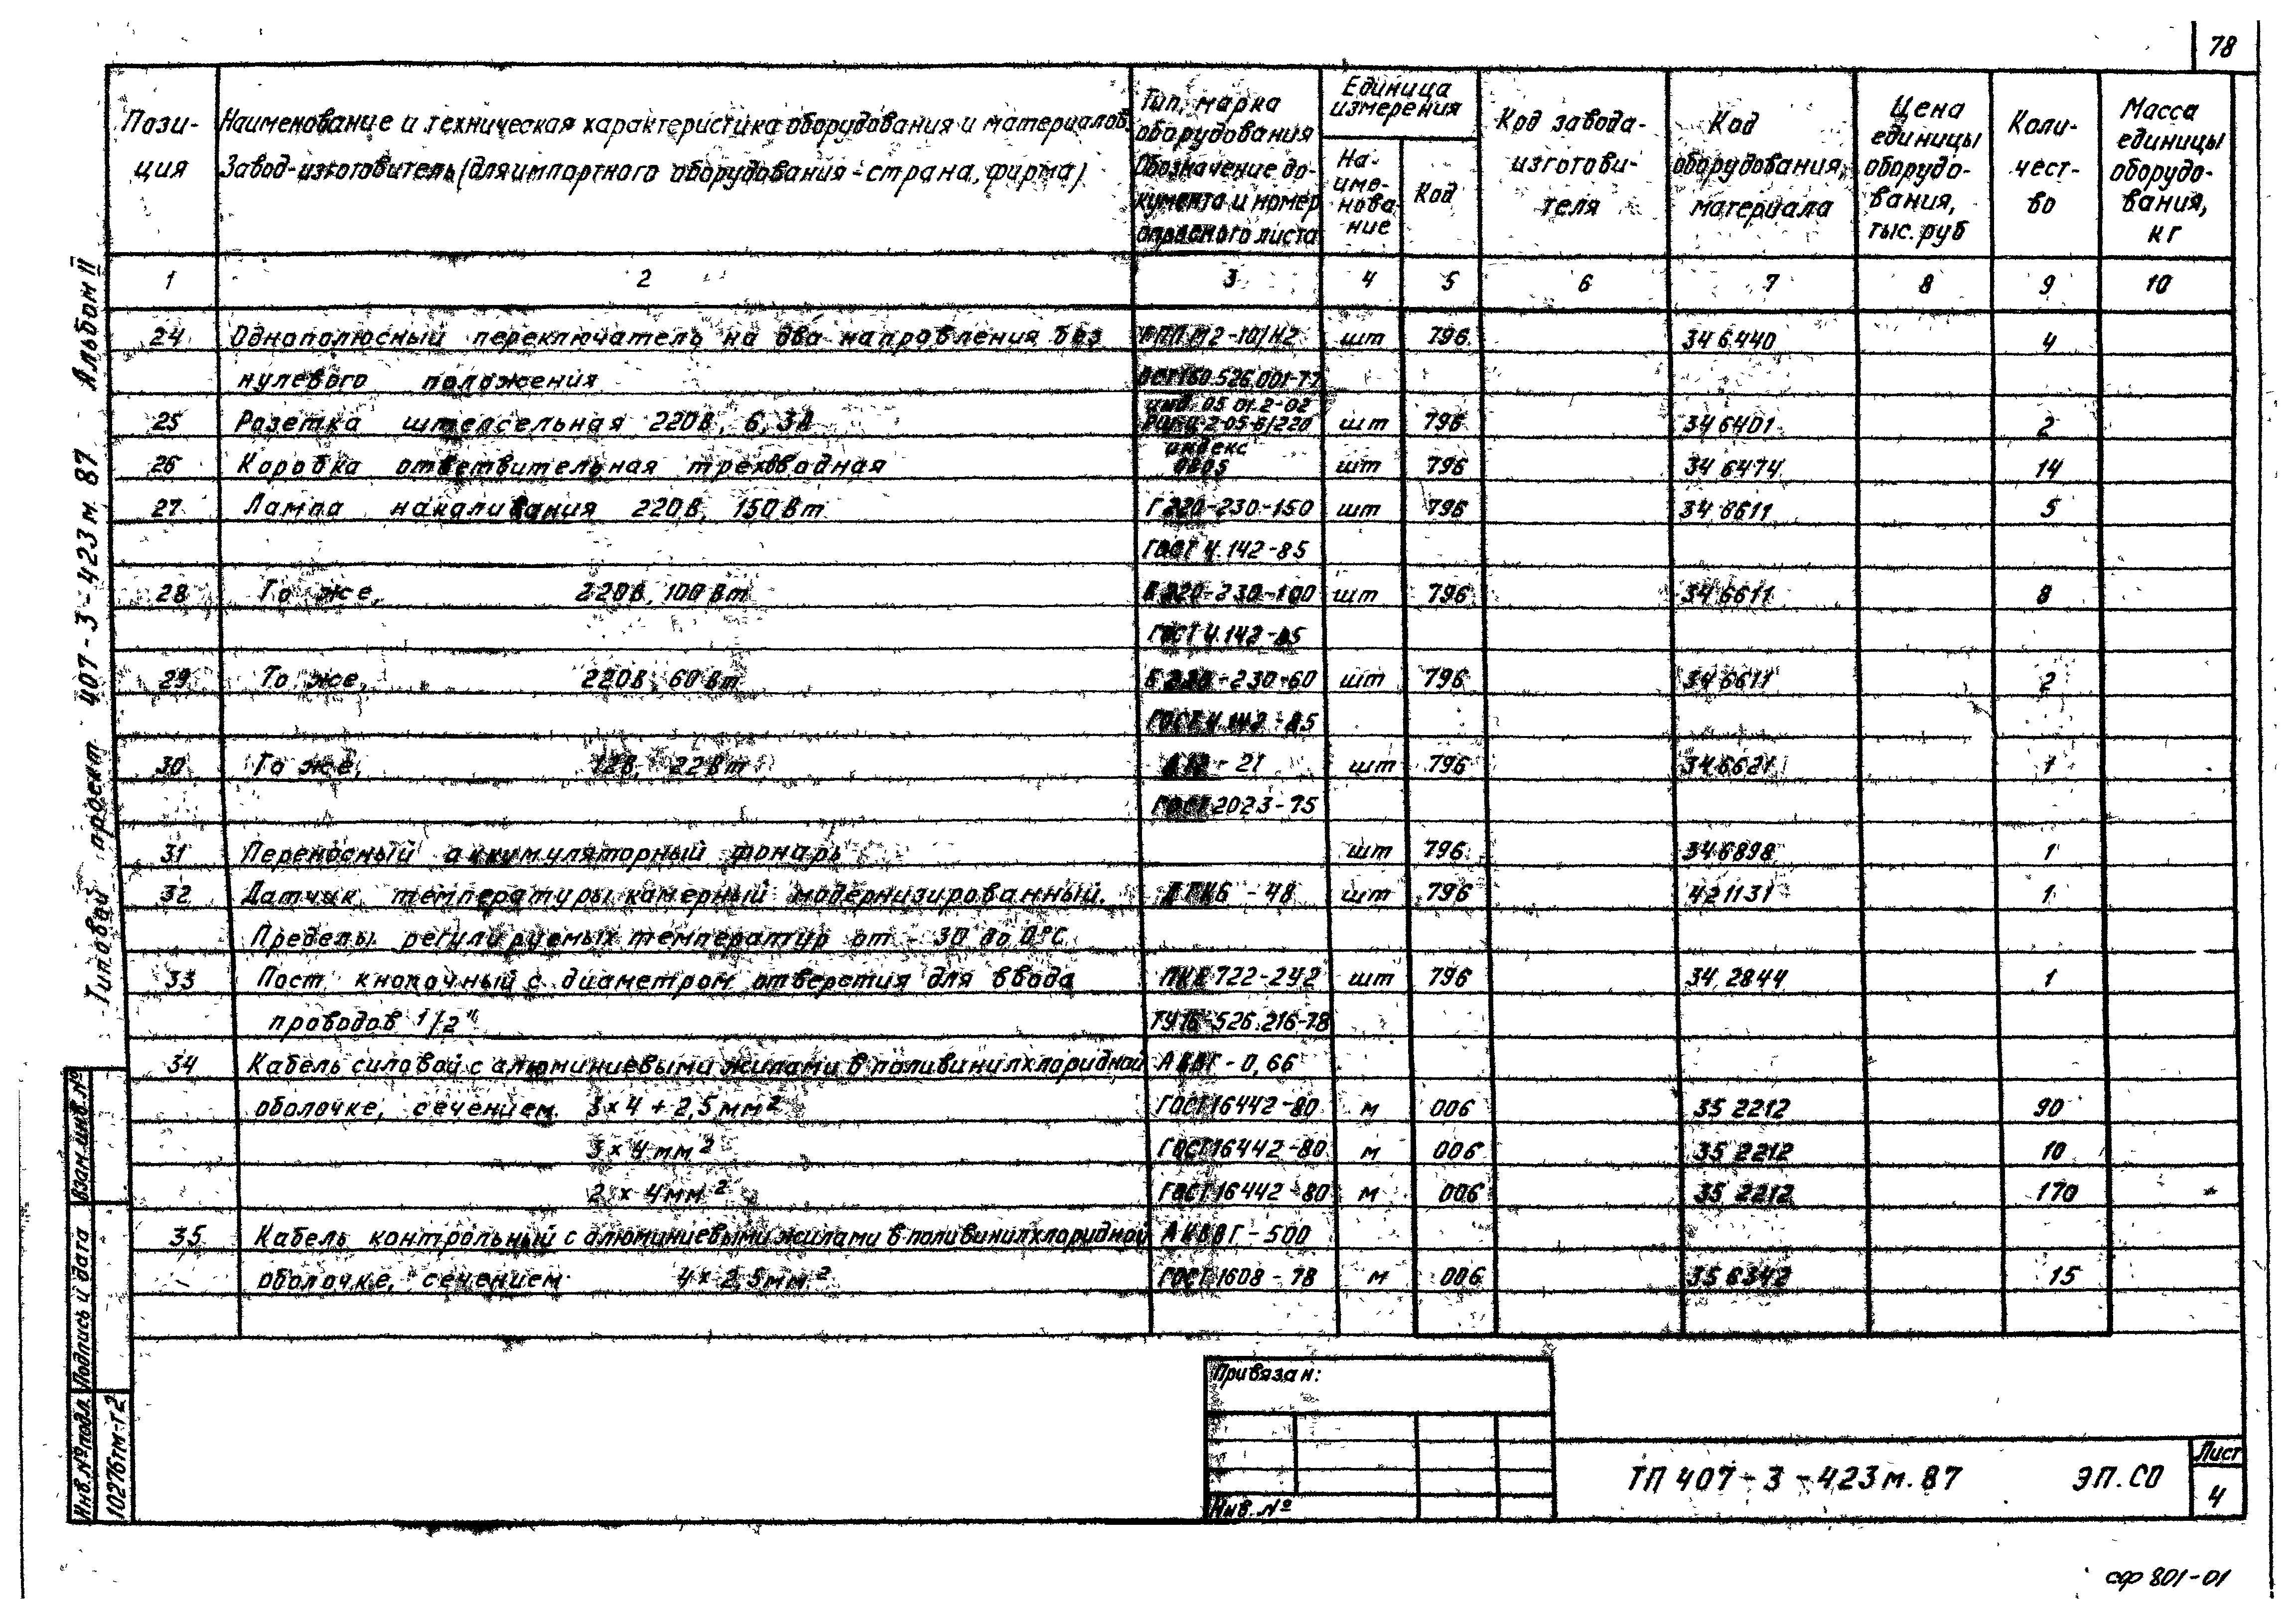 78
Пози-
ция
Наименование и техническая характеристика оборудования и материалов.
Завод-изготовитель (для импортного оборудования - страна, фирма)
Тип, марка
оборудования
Обозначение до-
кумента и номер
опросного листа
Единица
измерения
На-
име-
нова
ние
Код
Код завода-
изготови-
теля
Код
оборудования,
материала
Цена
единицы
оборудо-
вания,
тыс. руб
Коли-
чест-
во
Масса
единицы
оборудо-
вания,
кг
1 2 3 4 5 6 7 8 9 10
24 Однополюсный переключатель на два направления без ППМ2-10/Н2 шт 796 34 6440 4
нулевого положения ОСТ160.526.001-77
25 Розетка штепсельная 220В, 6,3А инд. 05 01.2-02 2-05-6/220 шт 796 34 6401 2
26 Коробка ответвительная трехвводная индекс шт 796 34 6474 14
27 Лампа накаливания 220В, 150Вт Г220-230-150 шт 796 34 6611 5
ГОСТ 4.142-85
28 То же, 220В, 100Вт Б220-230-100 шт 796 34 6611 8
ГОСТ 4.142-85
29 То же, 220В, 60Вт Б220-230-60 шт 796 34 6611 2
ГОСТ 4.142-85
30 То же, 12В, 22Вт А12-21 шт 796 34 6621 1
ГОСТ 2023-75
31 Переносный аккумуляторный фонарь шт 796 34 6898 1
32 Датчик температуры камерный модернизированный. ДТКБ-48 шт 796 421131 1
Пределы регулируемых температур от -30 до 0°С
33 Пост кнопочный с диаметром отверстия для ввода ПКЕ722-2У2 шт 796 34 2844 1
проводов 1/2" ТУ16-526.216-78
34 Кабель силовой с алюминиевыми жилами в поливинилхлоридной АВВГ-0,66
оболочке, сечением 3×4+2,5мм² ГОСТ16442-80 м 006 35 2212 90
3×4мм² ГОСТ16442-80 м 006 35 2212 10
2×4мм² ГОСТ16442-80 м 006 35 2212 170
35 Кабель контрольный с алюминиевыми жилами в поливинилхлоридной АКВВГ-500
оболочке, сечением 4×2,5мм² ГОСТ1608-78 м 006 35 6342 15
Типовой проект 407-3-423м.87 Альбом II
Взам.инв.№
Подпись и дата
Инв.№ подл.
10276тм-т2
Привязан:
Инв. №
ТП 407-3-423м.87 ЭП.СО
Лист
4
сф 801-01